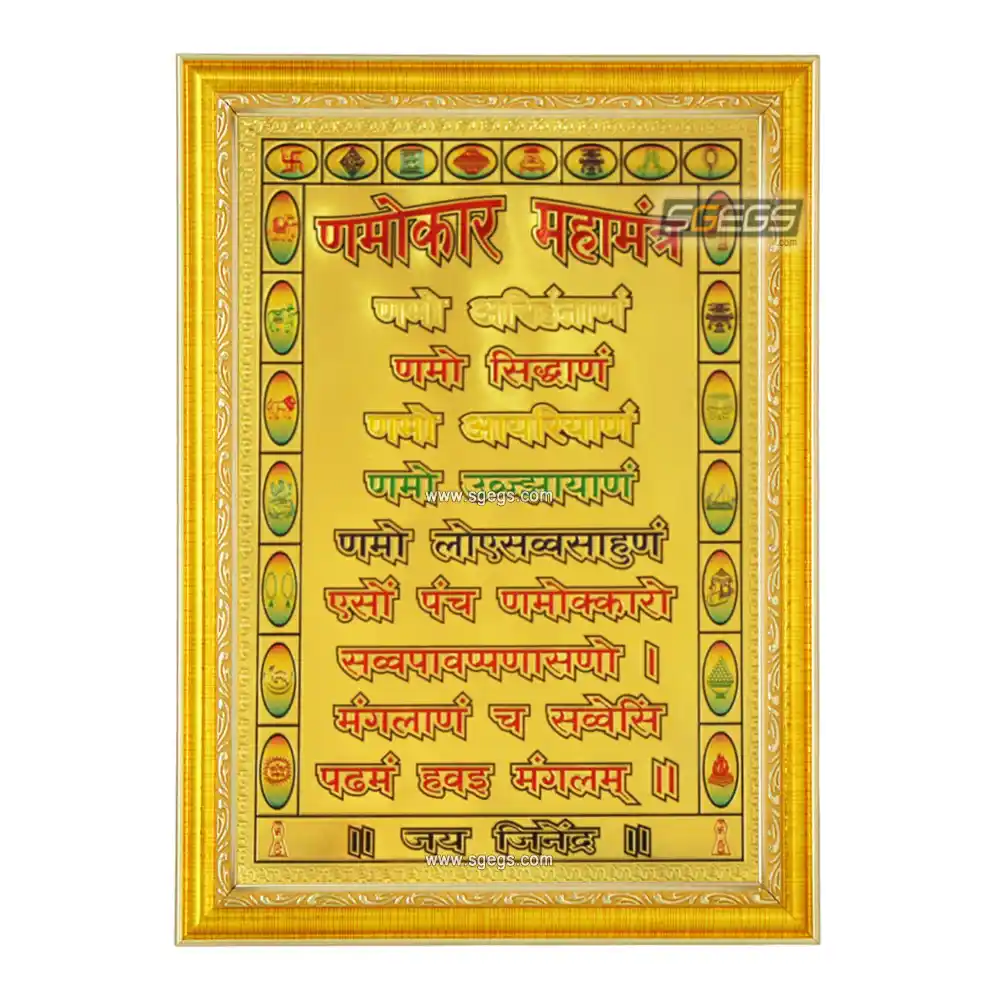 णमोकार महामंत्र
SGEGS
.com
णमो अरिहंताणं
णमो सिद्धाणं
णमो आयरियाणं
णमो उव्ज्झायाणं
www.sgegs.com
णमो लोएसव्वसाहुणं
एसों पंच णमोक्कारो
सव्वपावप्पणासणो ।
मंगलाणं च सव्वेसिं
पढमं हवइ मंगलम् ।।
।। जय जिनेंद्र ।।
www.sgegs.com